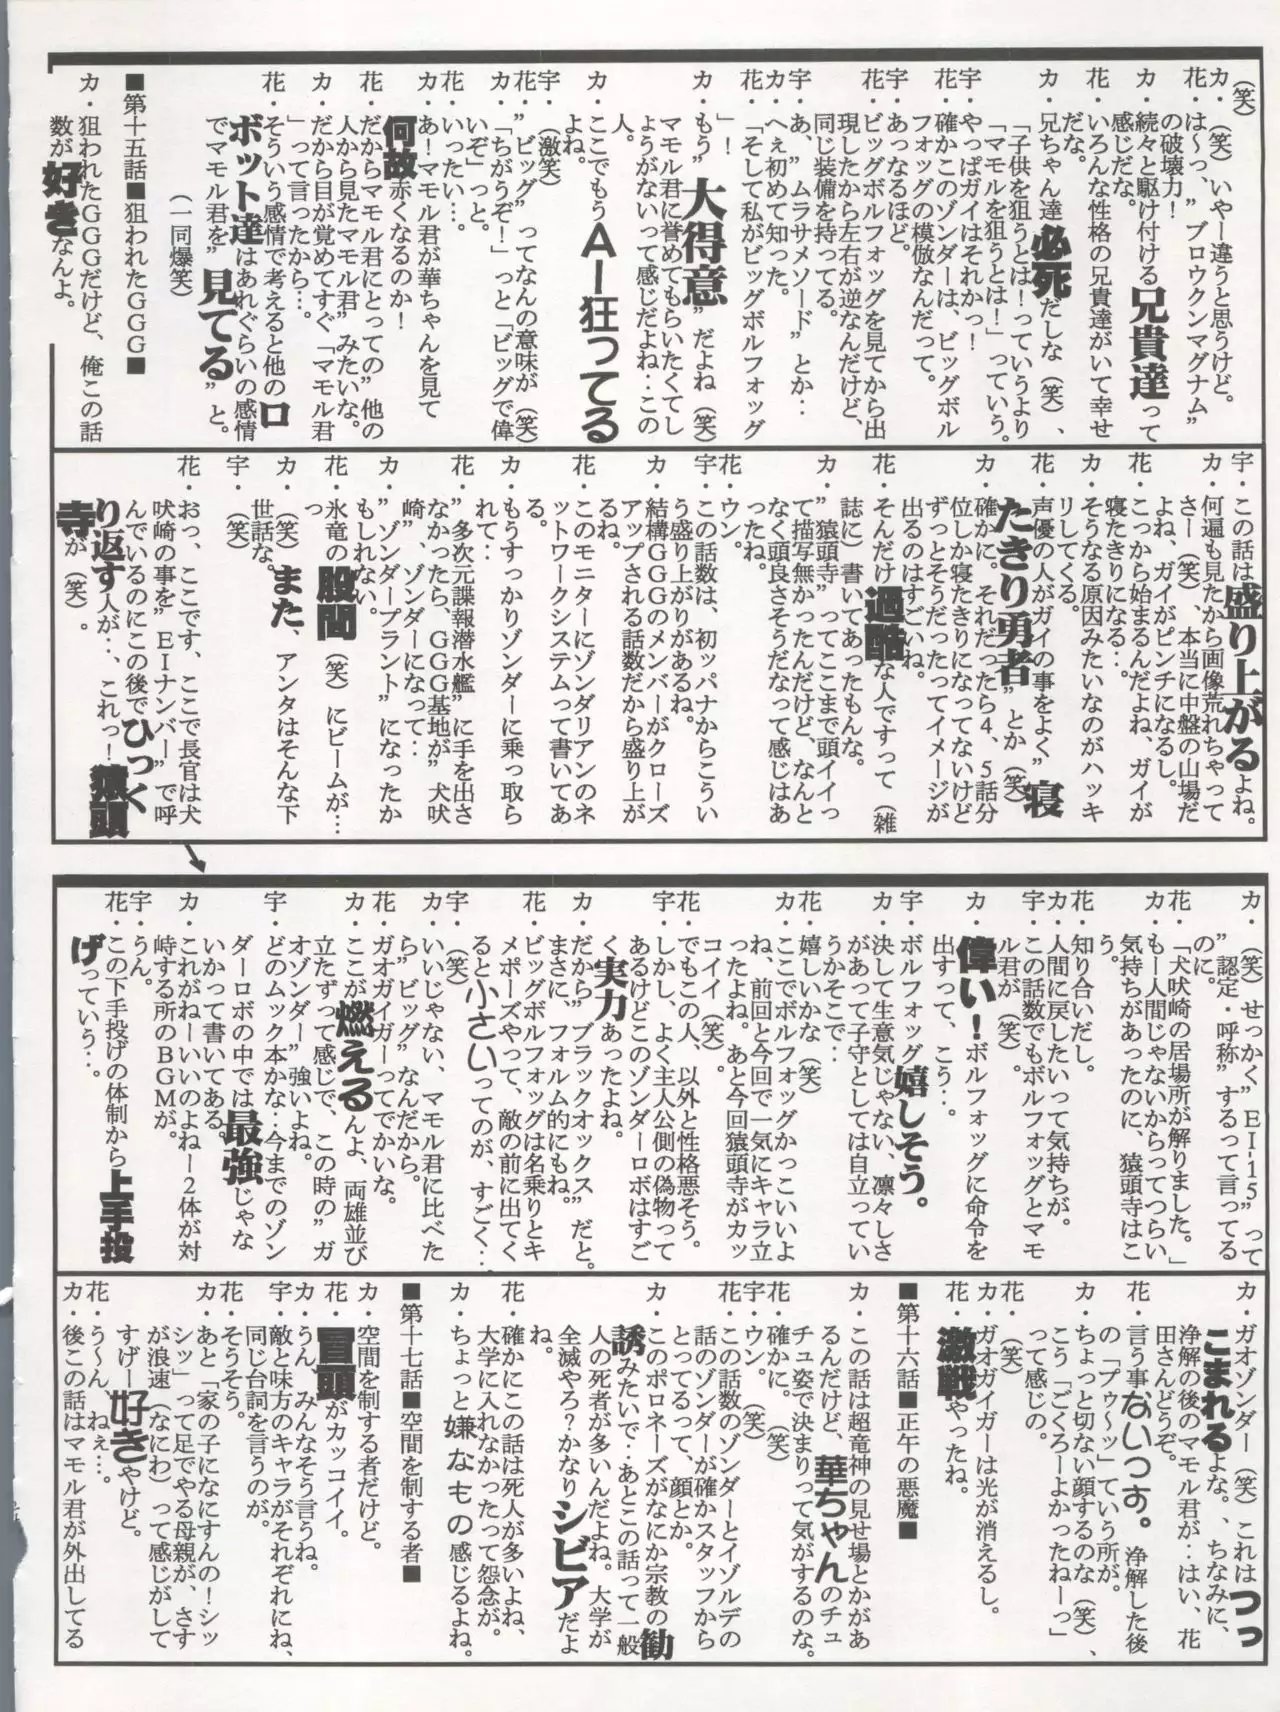 (笑)
カ・(笑)いやー違うと思うけど。
花・は~っ、”ブロウクンマグナム”
の破壊力!
カ・続々と駆け付ける兄貴達って
感じだな。
花・いろんな性格の兄貴達がいて幸せ
だな。
カ・兄ちゃん達必死だしな(笑)、
「子供を狙うとは!っていうより
「マモルを狙うとは!」っていう。
宇・やっぱガイはそれかっ!
花・確かこのゾンダーは、ビッグボル
フォッグの模倣なんだって。
宇・あっなるほど。
花・ビッグボルフォッグを見てから出
現したから左右が逆なんだけど、
同じ装備を持ってる。
宇・あ、”ムラサメソード”とか‥
カ・へぇ初めて知った。
花・「そして私がビッグボルフォッグ
」!
カ・もう”大得意”だよね(笑)
マモル君に誉めてもらいたくてし
ょうがないって感じだよね‥この
人。
カ・ここでもうAI狂ってる
よね。
宇・(激笑)
花・”ビッグ”ってなんの意味が(笑)
カ・「ちがうぞ!」っと「ビッグで偉
いぞ」っと。
花・いったい…。
カ・あ!マモル君が華ちゃんを見て
何故赤くなるのか!
花・だからマモル君にとっての”他の
人から見たマモル君”みたいな。
カ・だから目が覚めてすぐ「マモル君
」って言ったから…。
花・そういう感情で考えると他のロ
ボット達はあれぐらいの感情
でマモル君を”見てる”と。
(一同爆笑)
■第十五話■狙われたGGG■
カ・狙われたGGGだけど、俺この話
数が好きなんよ。
宇・この話は盛り上がるよね。
カ・何遍も見たから画像荒れちゃって
さー(笑)、本当に中盤の山場だ
よね、ガイがピンチになるし。
花・こっから始まるんだよね、ガイが
寝たきりになる‥
カ・そうなる原因みたいなのがハッキ
リしてくる。
花・声優の人がガイの事をよく”寝
たきり勇者”とか(笑)
カ・確かに。それだったら4、5話分
位しか寝たきりになってないけど
ずっとそうだったってイメージが
出るのはすごいね。
花・そんだけ過酷な人ですって(雑
誌に)書いてあったもんな。
カ・”猿頭寺”ってここまで頭イイっ
て描写無かったんだけど、なんと
なく頭良さそうだなって感じはあ
ったね。
花・ウン。
宇・この話数は、初ッパナからこうい
う盛り上がりがあるね。
カ・結構GGGのメンバーがクローズ
アップされる話数だから盛り上が
るね。
花・このモニターにゾンダリアンのネ
ットワークシステムって書いてあ
る。
カ・もうすっかりゾンダーに乗っ取ら
れて‥
花・”多次元諜報潜水艦”に手を出さ
なかったら、GGG基地が”犬吠
崎”、ゾンダーになって‥
カ・”ゾンダープラント”になったか
もしれない。
花・氷竜の股間(笑)にビームが…
っ
カ・(笑)また、アンタはそんな下
世話な。
宇・(笑)
花・おっ、ここです、ここで長官は犬
吠崎の事を”EIナンバー”で呼
んでいるのにこの後でひっく
り返す人が‥、これっ!猿頭
寺が(笑)。
カ・(笑)せっかく”EI-15”って
”認定・呼称”するって言ってる
のに。
花・「犬吠崎の居場所が解りました。」
カ・もー人間じゃないからってつらい
気持ちがあったのに、猿頭寺はこ
う。
花・知り合いだし。
カ・人間に戻したいって気持ちが。
宇・この話数でもボルフォッグとマモ
ル君が(笑)。
カ・偉い!ボルフォッグに命令を
出すって、こう‥。
宇・ボルフォッグ嬉しそう。
カ・決して生意気じゃない、凛々しさ
があって子守としては自立ってい
うかそこで‥
花・嬉しいかな(笑)
カ・ここでボルフォッグかっこいいよ
ね、前回と今回で一気にキャラ立
ったよね。あと今回猿頭寺がカッ
コイイ(笑)。
花・でもこの人、以外と性格悪そう。
宇・しかし、よく主人公側の偽物って
あるけどこのゾンダーロボはすご
く実力あったよね。
カ・だから”ブラックオックス”だと。
まさに、フォルム的にもね。
花・ビッグボルフォッグは名乗りとキ
メポーズやって、敵の前に出てく
ると小さいってのが、すごく‥
宇・(笑)
カ・いいじゃない、マモル君に比べた
ら”ビッグ”なんだから。
花・ガオガイガーってでかいな。
カ・ここが燃えるんよ、両雄並び
立たずって感じで、この時の”ガ
オゾンダー”強いよね。
宇・どのムック本かな‥今までのゾン
ダーロボの中では最強じゃな
いかって書いてある。
カ・これがねーいいのよねー2体が対
峙する所のBGMが。
宇・うん。
花・この下手投げの体制から上手投
げっていう‥。
カ・ガオゾンダー(笑)これはつっ
こまれるよな。、ちなみに、
浄解の後のマモル君が‥はい、花
田さんどうぞ。
花・言う事ないっす。浄解した後
の「プゥ~ッ」ていう所が。
カ・ちょっと切ない顔するのな(笑)、
こう「ごくろーよかったねーっ」
って感じの。
花・(笑)
カ・ガオガイガーは光が消えるし。
花・激戦やったね。
■第十六話■正午の悪魔■
カ・この話は超竜神の見せ場とかがあ
るんだけど、華ちゃんのチュ
チュ姿で決まりって気がするのな。
花・確かに。(笑)
宇・ウン。(笑)
花・この話数のゾンダーとイゾルデの
話のゾンダーが確かスタッフから
とってるって、顔とか。
カ・このポロネーズがなにか宗教の勧
誘みたいで‥あとこの話って一般
人の死者が多いんだよね。大学が
全滅やろ?かなりシビアだよ
ね。
花・確かにこの話は死人が多いよね、
大学に入れなかったって怨念が。
カ・ちょっと嫌なもの感じるよね。
■第十七話■空間を制する者■
カ・空間を制する者だけど。
花・冒頭がカッコイイ。
カ・うん みんなそう言うね。
宇・敵と味方のキャラがそれぞれにね、
同じ台詞を言うのが。
花・そうそう。
カ・あと「家の子になにすんの!シッ
シッ」って足でやる母親が、さす
が浪速(なにわ)って感じがして
すげー好きやけど。
花・う~ん、ねぇ…。
カ・後この話はマモル君が外出してる